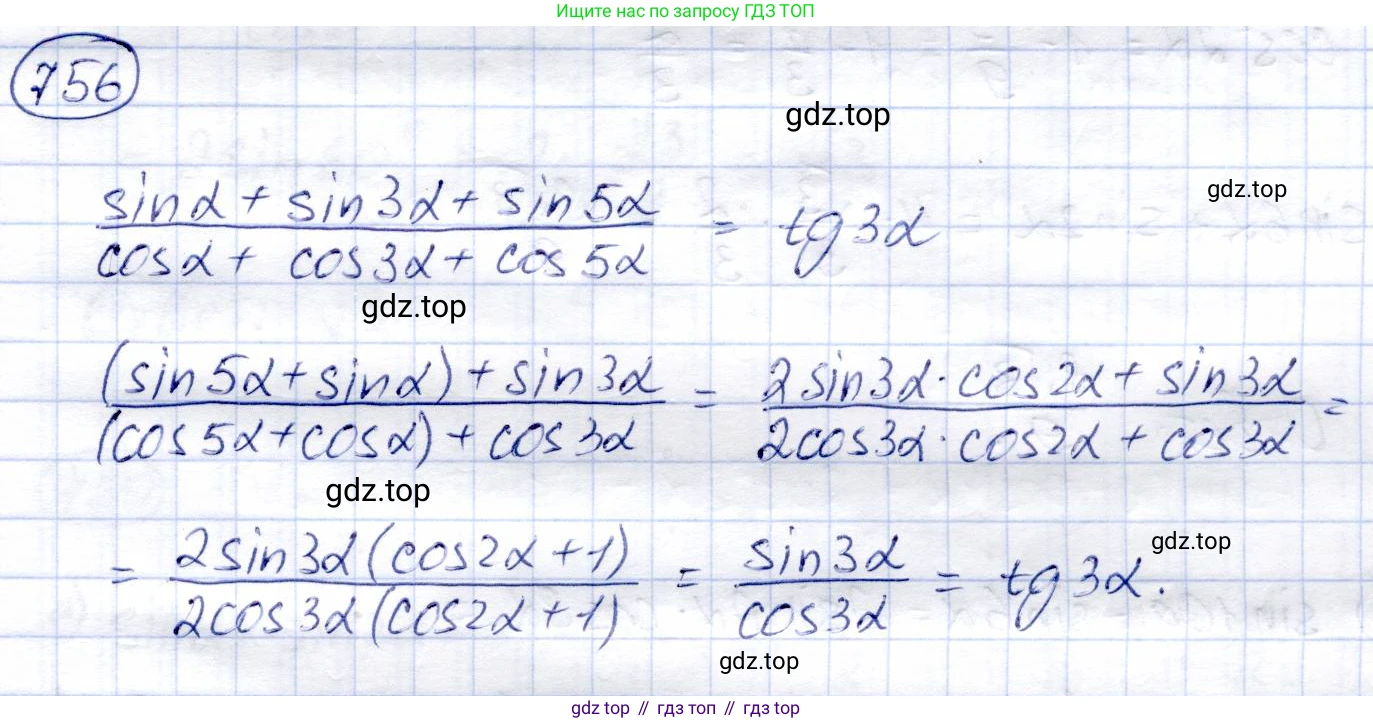 Ищите нас по запросу ГДЗ ТОП
756
gdz.top
(sinα + sin3α + sin5α)/(cosα + cos3α + cos5α) = tg3α
gdz.top
gdz.top
((sin5α + sinα) + sin3α)/((cos5α + cosα) + cos3α) = (2sin3α · cos2α + sin3α)/(2cos3α · cos2α + cos3α) =
gdz.top
= (2sin3α(cos2α + 1))/(2cos3α(cos2α + 1)) = sin3α/cos3α = tg3α.
gdz.top
gdz.top
gdz top // гдз топ // гдз top